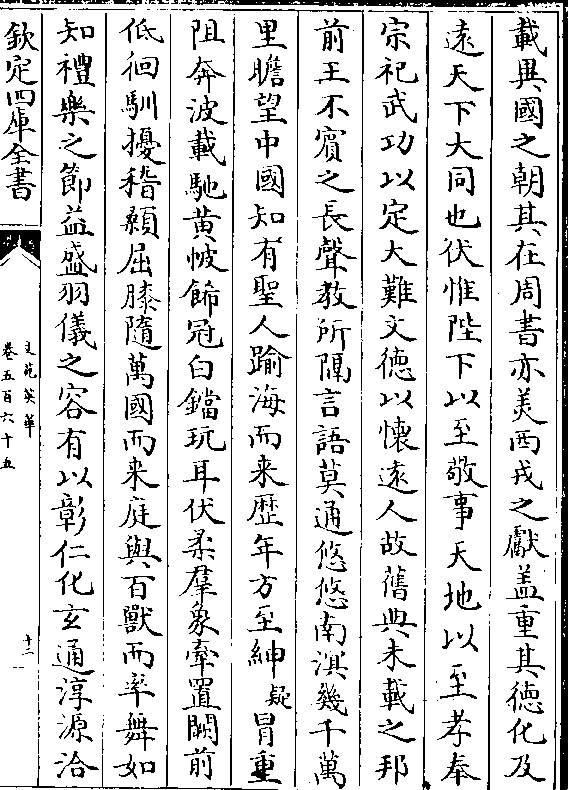 載異國之朝其在周書亦美西戎之獻盖重其徳化及
逺天下大同也伏惟陛下以至敬事天地以至孝奉
宗祀武功以定大難文徳以懷逺人故舊典未載之邦
前王不賔之長聲教所隔言語莫通悠悠南溟幾千萬
里瞻望中國知有聖人踰海而来歴年方至紳疑冐重
阻奔波載馳黄帔飾冠白鐺玩耳伏柔羣象牽置闕前
低徊馴擾稽顙屈膝隨萬國而来庭與百獸而率舞如
知禮樂之節益盛羽儀之容有以彰仁化玄通淳源洽
欽定四庫全書
文苑英華
卷五百六十五
十二